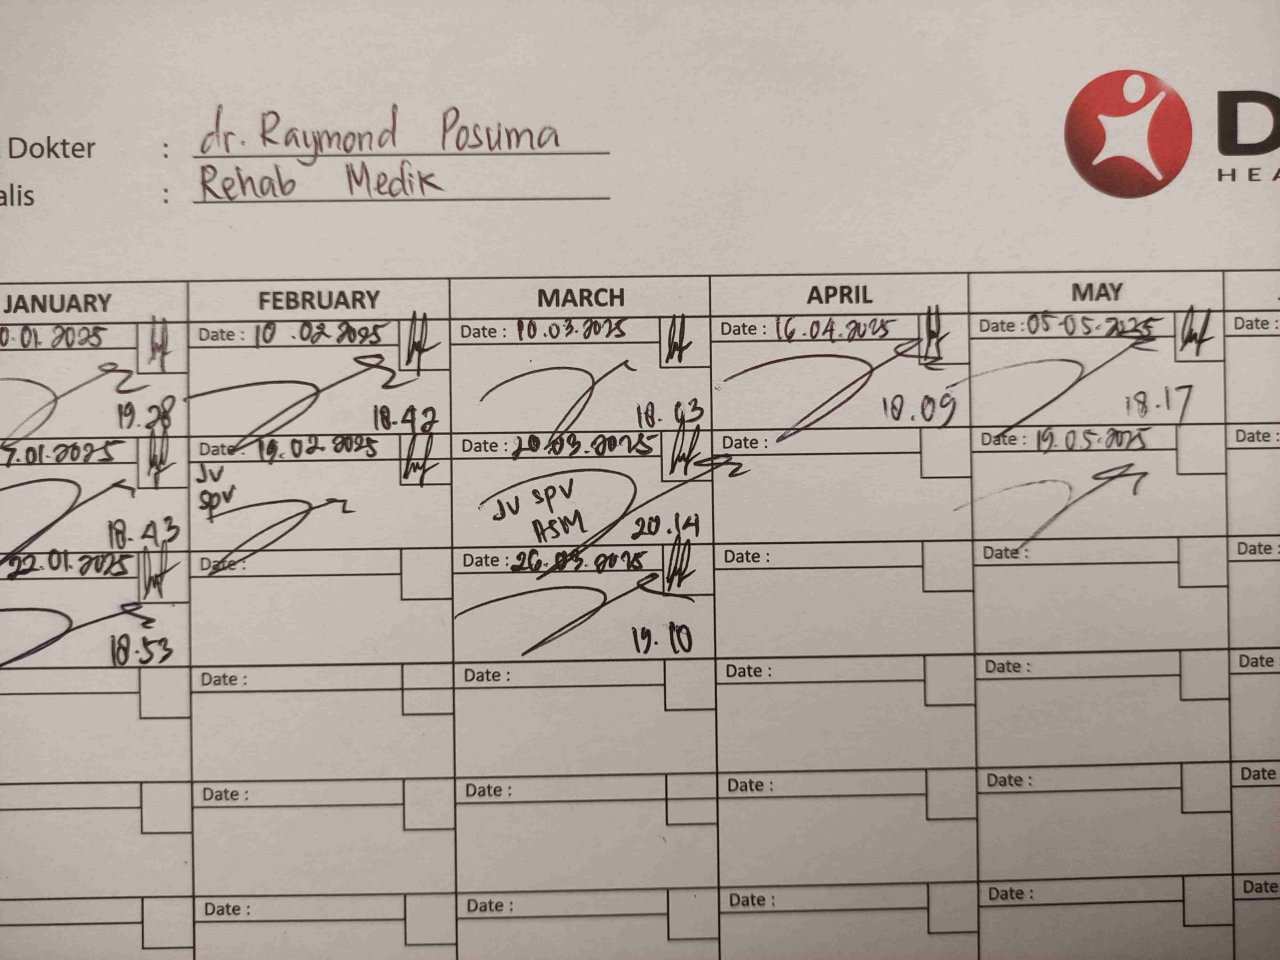 Dokter : dr. Raymond Posuma
alis : Rehab Medik
D
HEA
JANUARY FEBRUARY MARCH APRIL MAY
0.01.2025 Date : 10.02.2025 Date : 10.03.2025 Date : 16.04.2025 Date : 05.05.2025 Date :
19.28 18.42 18.43 18.09 18.17
.01.2025 Date : 19.02.2025 Date : 20.03.2025 Date : Date : 19.05.2025 Date :
JV
SPV
JV SPV
ASM
18.43 20.14
22.01.2025 Date : Date : 26.03.2025 Date : Date : Date :
18.53 19.10
Date : Date : Date : Date : Date
Date : Date : Date : Date : Date
Date : Date : Date : Date : Date